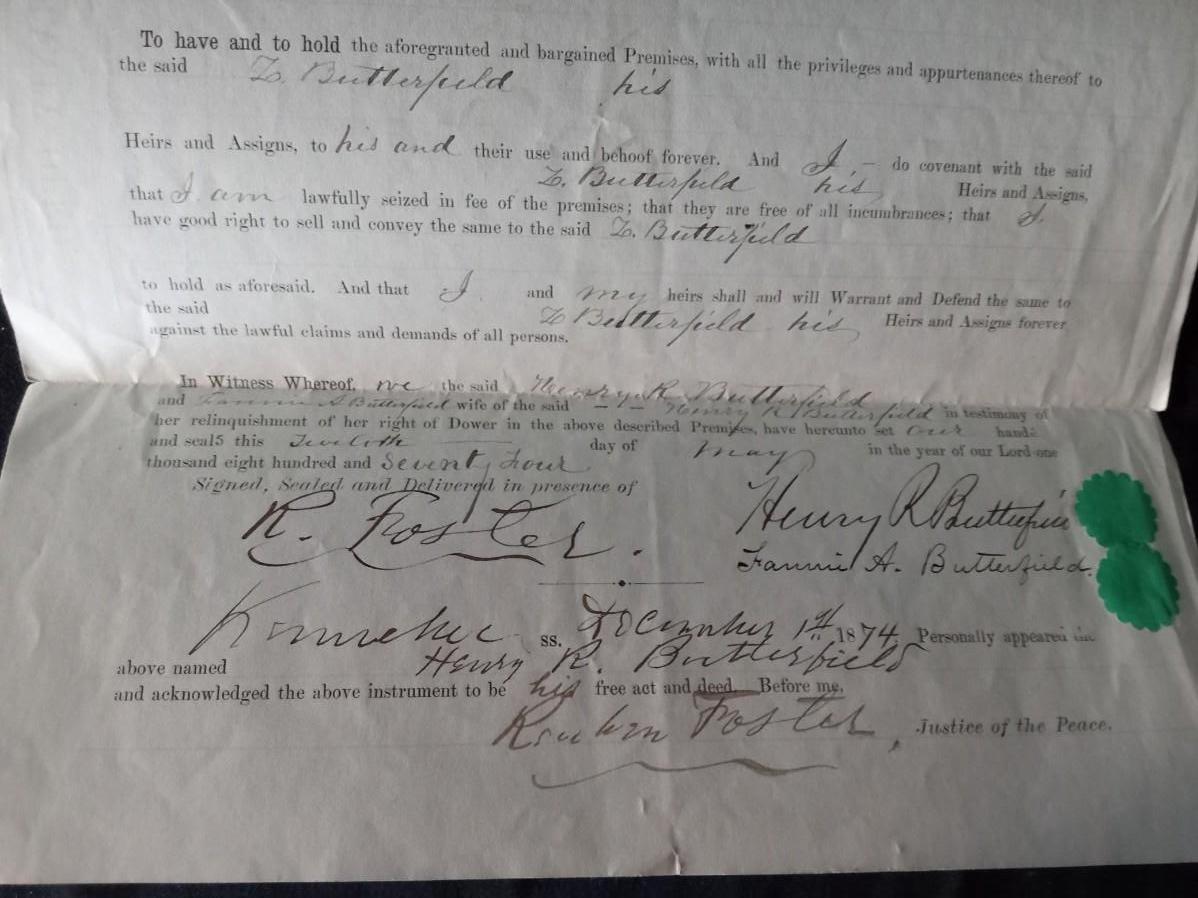 To have and to hold the aforegranted and bargained Premises, with all the privileges and appurtenances thereof to
the said Z. Butterfield his
Heirs and Assigns, to his and their use and behoof forever. And I, – do covenant with the said
Z. Butterfield his Heirs and Assigns,
that I am lawfully seized in fee of the premises; that they are free of all incumbrances; that I
have good right to sell and convey the same to the said Z. Butterfield
to hold as aforesaid. And that I and my heirs shall and will Warrant and Defend the same to
the said Z Butterfield his Heirs and Assigns forever
against the lawful claims and demands of all persons.
In Witness Whereof, we the said Henry R. Butterfield
and Fannie A Butterfield wife of the said – – Henry R Butterfield in testimony of
her relinquishment of her right of Dower in the above described Premises, have hereunto set our hands
and seals this day of May in the year of our Lord one
thousand eight hundred and Seventy Four
Signed, Sealed and Delivered in presence of
R. Foster. Henry R Butterfield
Fannie A. Butterfield.
Kennebec ss. December 1st 1874. Personally appeared the
above named Henry R. Butterfield
and acknowledged the above instrument to be his free act and deed. Before me,
Reuben Foster, Justice of the Peace.